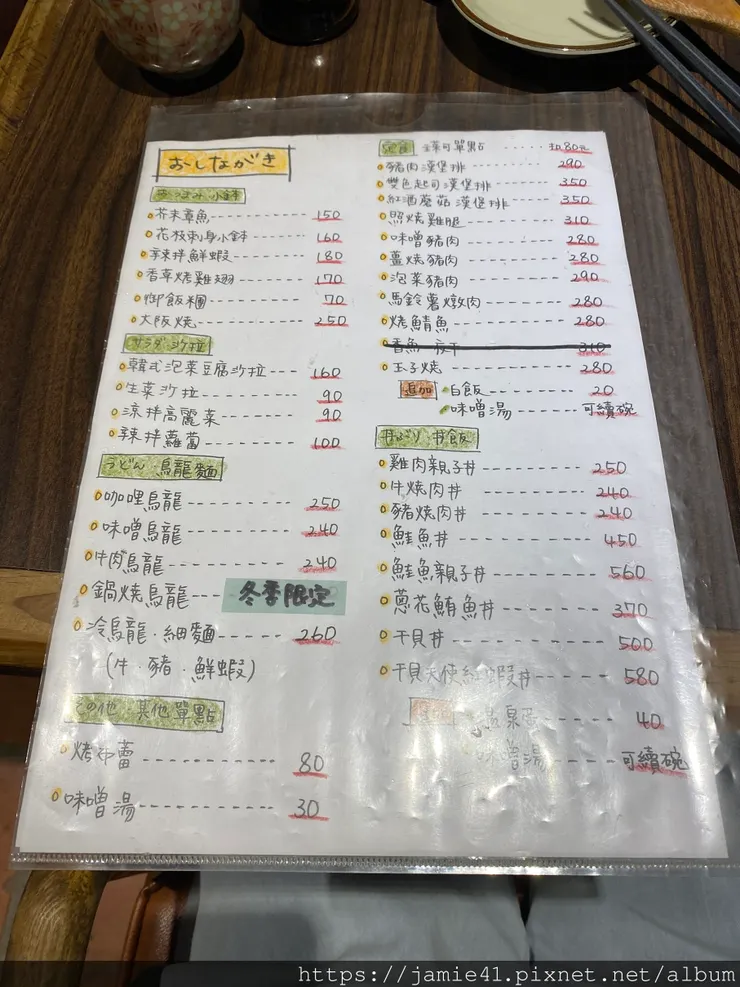 おしながき
おつまみ 小鉢
芥末章魚 150
花枝刺身小鉢 160
辣拌鮮蝦 180
香草烤雞翅 170
御飯糰 70
大阪燒 250
サラダ 沙拉
韓式泡菜豆腐沙拉 160
生菜沙拉 90
涼拌高麗菜 90
辣拌蘿蔔 100
うどん 烏龍麵
咖哩烏龍 250
味噌烏龍 240
牛肉烏龍 240
鍋燒烏龍 冬季限定
冷烏龍·細麵 260
(牛·豬·鮮蝦)
その他 其他單點
烤布蕾 80
味噌湯 30
定食 可單點 扣80元
豬肉漢堡排 290
雙色起司漢堡排 350
紅酒蘑菇漢堡排 350
照燒雞腿 310
味噌豬肉 280
薑燒豬肉 280
泡菜豬肉 290
馬鈴薯燉肉 280
烤鯖魚 280
香魚一夜干 310
玉子燒 280
追加 白飯 20
味噌湯 可續碗
丼ぶり 丼飯
雞肉親子丼 250
牛燒肉丼 240
豬燒肉丼 240
鮭魚丼 450
鮭魚親子丼 560
蔥花鮪魚丼 370
干貝丼 500
干貝天使紅蝦丼 580
溫泉蛋 40
味噌湯 可續碗
https://jamie41.pixnet.net/album